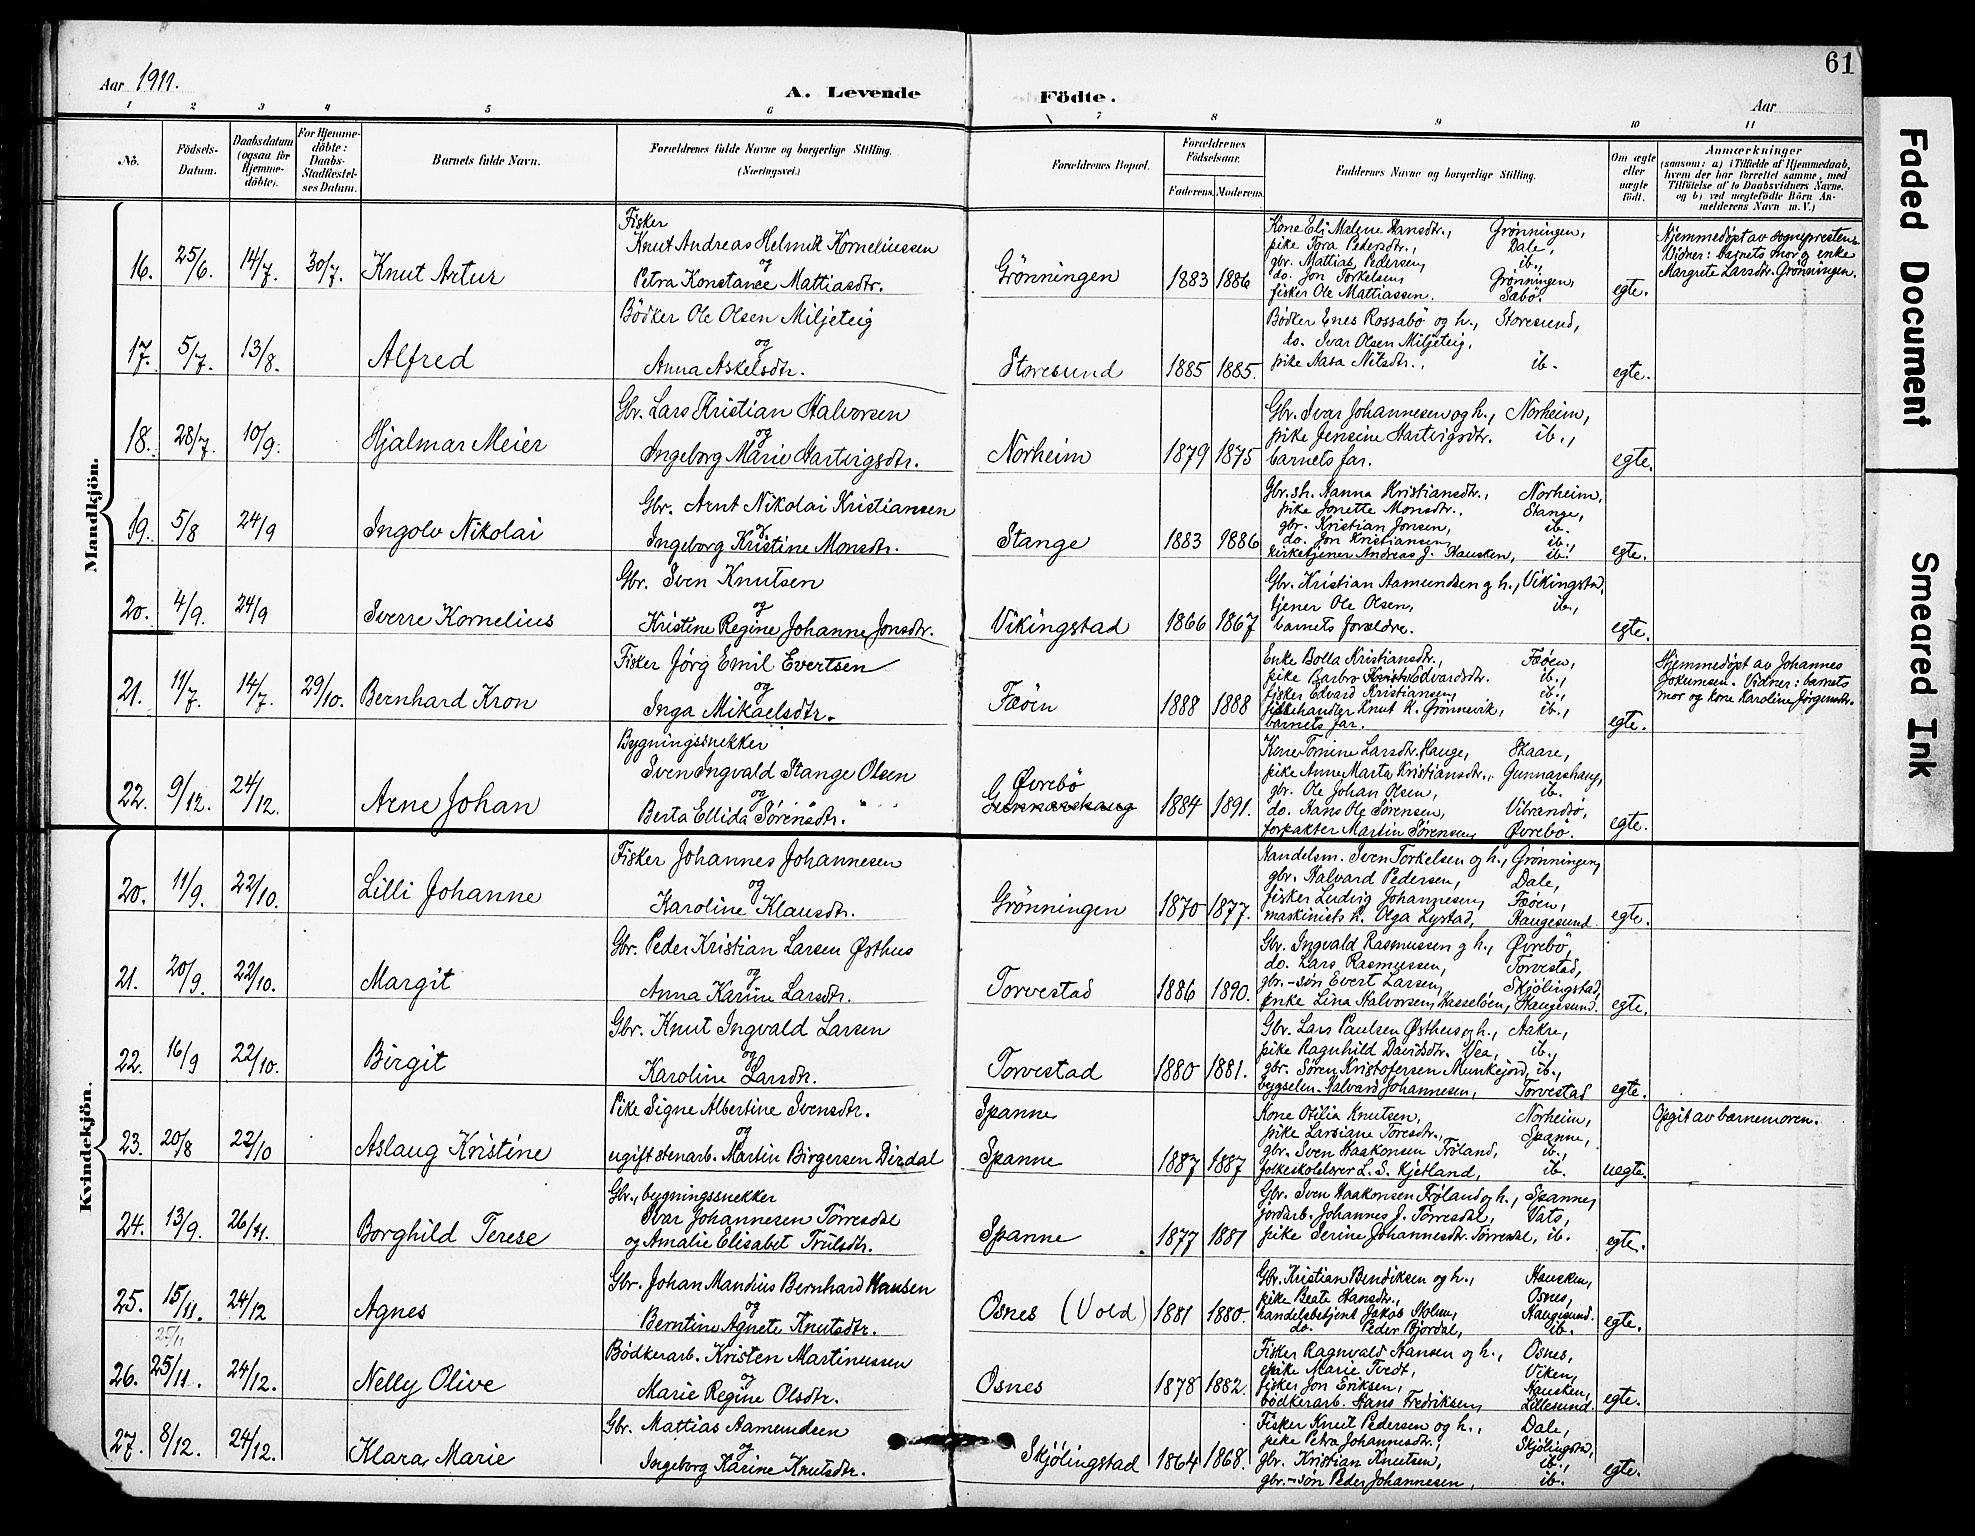 61
Aar 1911.
A. Levende Födte.
Aar
1 2 3 4 5 6 7 8 9 10 11
No.
Födsels-Datum.
Daabsdatum (ogsaa for Hjemmedöbte).
For Hjemmedöbte: Daabs-Stadfæstelses Datum.
Barnets fulde Navn.
Forældrenes fulde Navne og borgerlige Stilling.
(Næringsvei.)
Forældrenes Bopæl.
Forældrenes Födselsaar.
Faderens. Moderens.
Faddernes Navne og borgerlige Stilling.
Om ægte eller uægte födt.
Anmærkninger
(saasom: a) i Tilfælde af Hjemmedaab, hvem der har forrettet samme, med Tilföielse af to Daabsvidners Navne, og b) ved uægtefödte Börn Anmelderens Navn m. V.)
Mandkjön.
16. 25/6. 14/7. 30/7. Knut Artur
Fisker
Knut Andreas Helmik Korneliussen
og
Petra Konstance Mattiasdtr.
Grönningen 1883 1886
Kone Eli Malene Hansdtr., Grönningen,
pike Tora Pedersdtr., Dale,
gbr. Mattias Pedersen, ib.,
do. Jon Torkelsen, Grönningen,
fisker Ole Mattiassen. Sæbö.
egte.
Hjemmedöpt av sognepresten.
Vidner: barnets mor og enke
Margrete Larsdtr. Grönningen.
17. 5/7. 13/8. Alfred
Bödker Ole Olsen Miljeteig
og
Anna Askelsdtr.
Storesund 1885 1885.
Bödker Enes Rossabö og h., Storesund,
do. Ivar Olsen Miljeteig,
pike Aasa Nilsdtr., ib.
egte.
18. 28/7. 10/9. Hjalmar Meier
Gbr. Lars Kristian Halvorsen
og
Ingeborg Marie Hartvigsdtr.
Norheim 1879 1875
Gbr. Ivar Johannesen og h., Norheim,
pike Jensine Hartvigsdtr. ib.,
barnets far.
egte.
19. 5/8 24/9 Ingolv Nikolai
Gbr. Arnt Nikolai Kristiansen
og
Ingeborg Kristine Monsdtr.
Stange 1883 1886
Gbr.sh. Nanna Kristiansdtr., Norheim,
pike Jonette Monsdtr., Stange,
gbr. Kristian Jonsen, ib.
do. Jon Kristiansen, ib.,
kirketjener Andreas J. Hausken, ib.
egte.
20. 4/9. 24/9 Sverre Kornelius
Gbr. Sven Knutsen
og
Kristine Regine Johanne Jonsdtr.
Vikingstad 1866 1867
Gbr. Kristian Aamundsen og h., Vikingstad,
tjener Ole Olsen, ib.,
barnets forældre.
egte.
21. 11/7. 14/7. 29/10. Bernhard Kron
Fisker Jörg Emil Evertsen
og
Inga Mikaelsdtr.
Fæöen 1888 1888
Enke Bolla Kristiansdtr., Fæöen,
pike Barbro Edvardsdtr. ib.,
fisker Edvard Kristiansen, ib.,
fiskehandler Knut K. Grönnevik, ib.,
barnets far.
egte.
Hjemmedöpt av Johannes
Jokumsen. Vidner: barnets
mor og kone Karoline Jörgensdtr.
22. 9/12. 24/12. Arne Johan
Bygningssnekker
Sven Ingvald Stange Olsen
og
Berta Ellida Sörensdtr.
Övrebö
Gunnarshaug 1884 1891.
Kone Tomine Larsdtr. Hauge, Skaare,
pike Anne Marta Kristiansdtr., Gunnarshaug,
gbr. Ole Johan Olsen, ib.
do. Hans Ole Sörensen, Vibrandsö,
forpakter Martin Sörensen, Övrebö.
egte.
Kvindekjön.
20. 11/9. 22/10. Lilli Johanne
Fisker Johannes Johannesen
og
Karoline Klausdtr.
Grönningen 1870 1877.
Handelsm. Sven Torkelsen og h., Grönningen,
gbr. Halvard Pedersen, Dale,
fisker Ludvig Johannesen, Fæöen,
maskinists h. Olga Lystad, Haugesund.
egte.
21. 20/9. 22/10. Margit
Gbr. Peder Kristian Larsen Östhus
og
Anna Karine Larsdtr.
Torvestad 1886 1890.
Gbr. Ingvald Rasmussen og h., Övrebö,
do. Lars Rasmussen, Torvestad,
gbr.-sön Evert Larsen, Skjölingstad,
enke Lina Halvorsen, Hasselöen, Haugesund.
egte.
22. 16/9 22/10. Birgit
Gbr. Knut Ingvald Larsen
og
Karoline Larsdtr.
Torvestad 1880 1881.
Gbr. Lars Paulsen Östhus og h., Aakre,
pike Ragnhild Davidsdtr. Vea, ib.,
gbr. Sören Kristofersen Munkejord, ib.,
bygselm. Halvard Johannesen, Torvestad
egte.
23. 20/8 22/10 Aslaug Kristine
Pike Signe Albertine Svensdtr.
og
ugift stenarb. Martin Birgersen Dirdal
Spanne
Spanne 1887 1887
Kone Otilia Knutsen, Norheim,
pike Larsiane Toresdtr., Spanne,
gbr. Sven Haakonsen Fröland, ib.,
folkeskolelærer L. S. Kjetland, ib.
uegte.
Opgit av barnemoren.
24. 13/9. 26/11. Borghild Terese
Gbr., bygningssnekker
Ivar Johannesen Torresdal
og Amalie Elisabet Trulsdtr.
Spanne 1877 1881
Gbr. Sven Haakonsen Fröland og h., Spanne,
jordarb. Johannes J. Torresdal, Vats,
pike Serine Johannesdtr. Torresdal, ib.
egte.
25. 15/11. 24/12 Agnes
Gbr. Johan Mandius Bernhard Hansen
og
Berntine Agnete Knutsdtr.
Osnes (Vold) 1881 1880.
Gbr. Kristian Bendiksen og h., Hausken,
pike Beate Hansdtr., Osnes,
handelsbetjent Jakob Holm, Haugesund.
do. Peder Bjordal, ib.
egte.
25/11
26. 25/11. 24/12. Nelly Olive
Bödkerarb. Kristen Martinussen
og
Marie Regine Olsdtr.
Osnes 1878 1882.
Fisker Ragnvald Hansen og h., Osnes,
pike Marie Tvedt, Viken,
fisker Jon Eriksen, Hausken,
bödkerarb. Hans Fredriksen, Lillesund.
egte.
27. 8/12. 24/12. Klara Marie
Gbr. Mattias Aamundsen
og
Ingeborg Karine Knutsdtr.
Skjölingstad 1864 1868.
Fisker Knut Pedersen og h., Dale,
pike Petra Johannesdtr., Skjölingstad,
gbr. Kristian Knutsen, ib.,
gbr.-sön Peder Johannesen, ib.
egte.
Faded Document
Smeared Ink